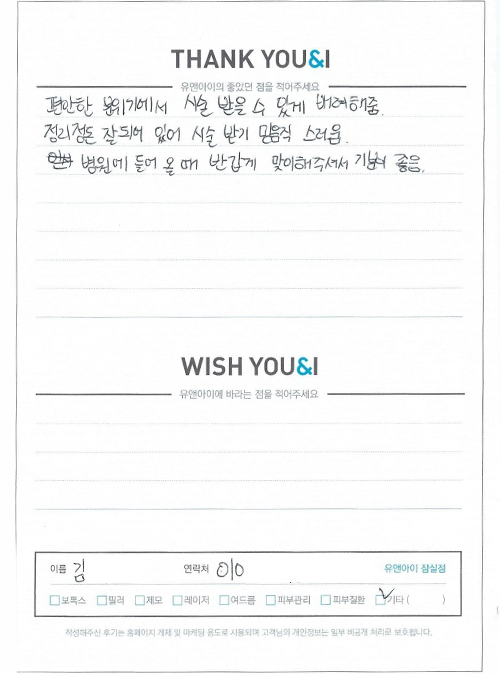 THANK YOU&I
유앤아이의 좋았던 점을 적어주세요
편안한 분위기에서 시술 받을 수 있게 배려해줌.
정리정돈 잘 되어 있어 시술 받기 믿음직 스러움.
병원에 들어 올 때 반갑게 맞이해주셔서 기분이 좋음.
WISH YOU&I
유앤아이에 바라는 점을 적어주세요
이름 김 연락처 010 유앤아이 잠실점
보톡스 필러 제모 레이저 여드름 피부관리 피부질환 기타 ( )
작성해주신 후기는 홈페이지 게제 및 마케팅 용도로 사용되며 고객님의 개인정보는 일부 비공개 처리로 보호됩니다.